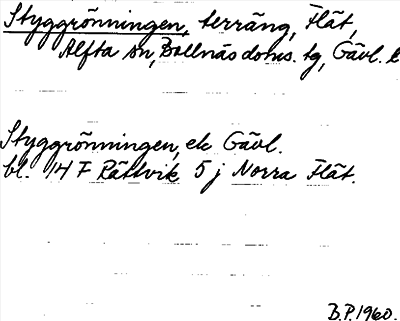 Styggrönningen, terräng, Flät,
Alfta sn, Bollnäs doms. tg, Gävl. l
Styggrönningen, ek Gävl.
bl. 14 F Rättvik 5 j Norra Flät.
B.P. 1960.